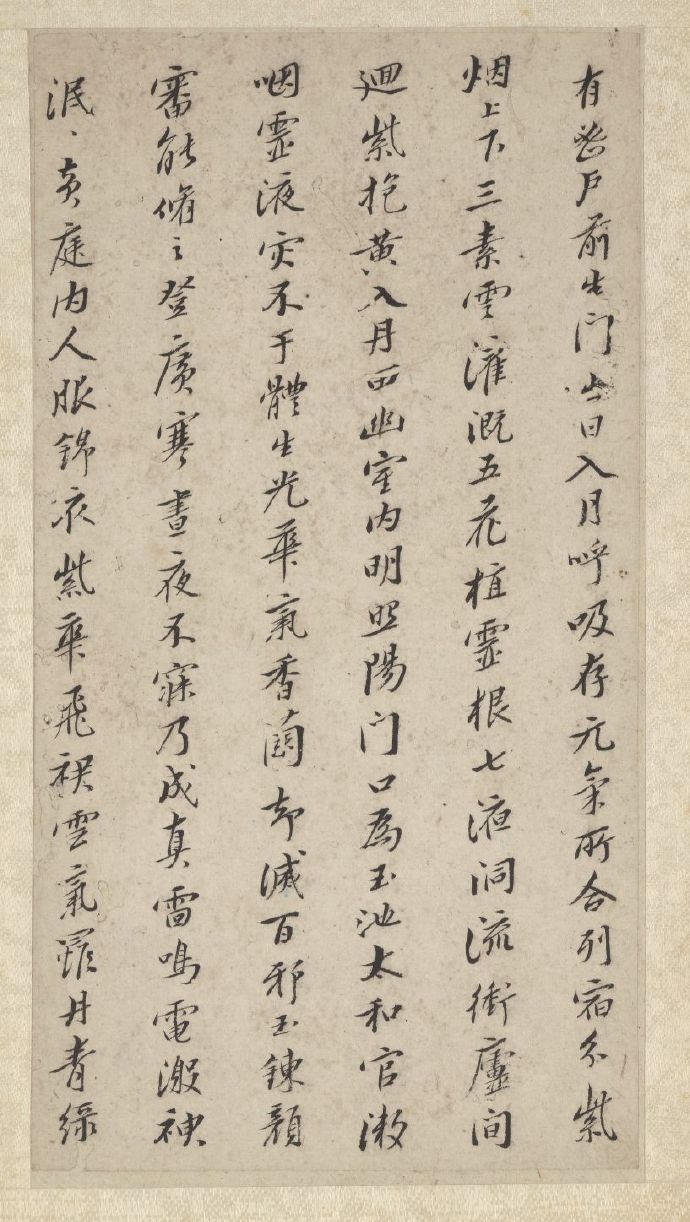 有密戶前生门出日入月呼吸存元氣所合列宿分紫
烟上下三素雲灌溉五花植靈根七液洞流衝廬间
迴紫抱黄入丹田幽室内明照陽门口為玉池太和官漱
咽靈液灾不干體生光華氣香蘭却滅百邪玉鍊顏
審能脩之登廣寒晝夜不寐乃成真雷鳴電激神
泯〻黄庭内人服錦衣紫華飛裙雲氣羅丹青緑